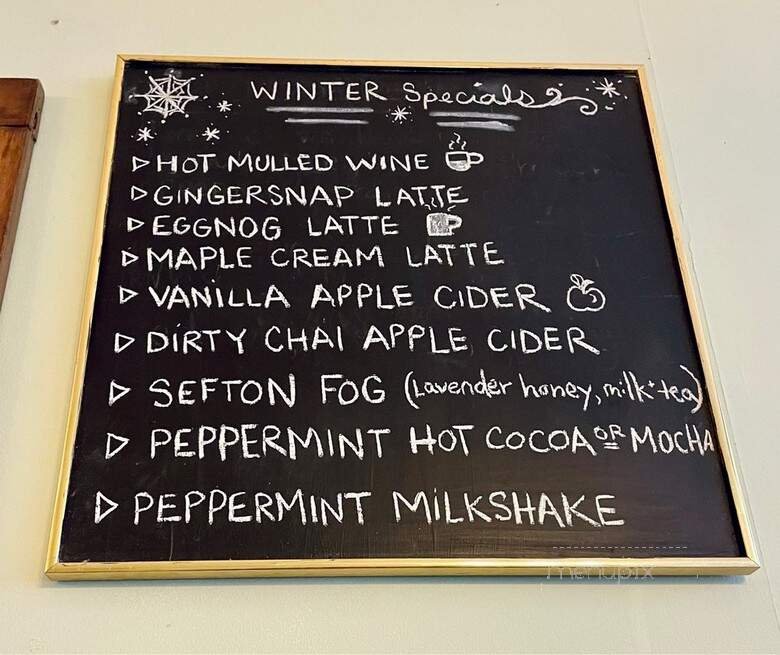 WINTER Specials
HOT MULLED WINE
GINGERSNAP LATTE
EGGNOG LATTE
MAPLE CREAM LATTE
VANILLA APPLE CIDER
DIRTY CHAI APPLE CIDER
SEFTON FOG (Lavender honey, milk + tea)
PEPPERMINT HOT COCOA OR MOCHA
PEPPERMINT MILKSHAKE
menupix